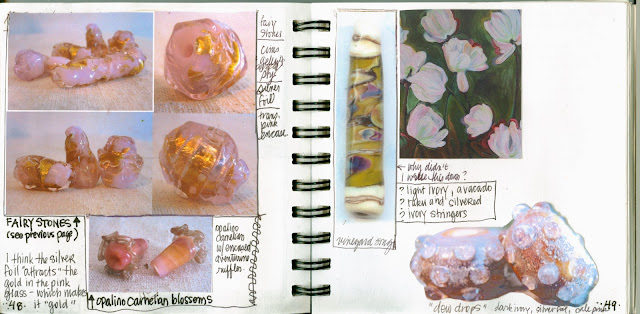 fairy
stones
silver
foil
trans.
pink
encase
FAIRY STONES ↑
(see previous page)
I think the silver
foil "attracts" the
gold in the pink
glass - which makes
it "gold"
48
opalino
carnelian
w/ encased
aventurine
ruffles.
↑ opalino carnelian blossoms
← why didn't
I write this down?
? light ivory, avocado
? raku and silvered
? ivory stringers
vineyard
"dew drops" dark ivory, silver foil, pale pink
49